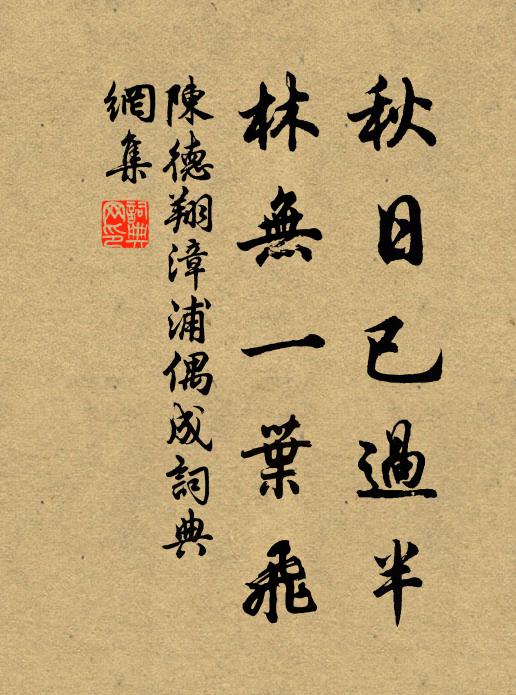 秋日已過半
林無一葉飛
陳德翔漳浦偶成詞典
網集
詞典
网印